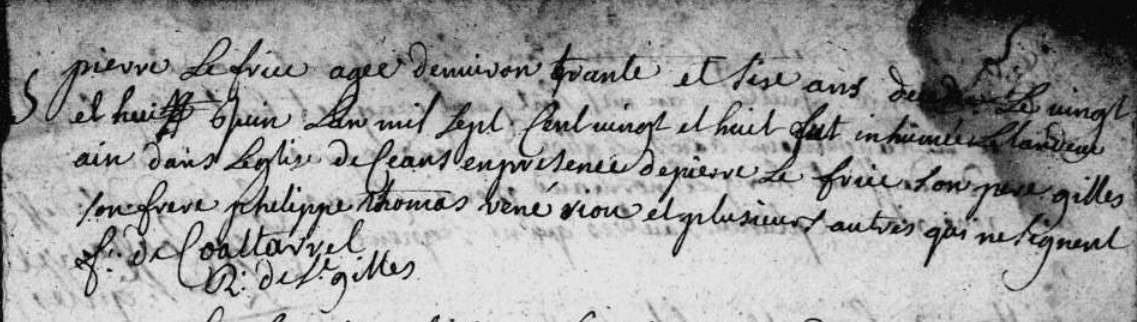 pierre Le frice agee demviron trante et sise ans de Le vingt
et huit Juin Lan mil sept Cent vingt et huit fut inhumée Landem
ain dans Leglise de Ceans enpresence depierre Le frice son pere gilles
son frere philippe thomas rené riou et plusieurs autres qui ne signent
f: de Coattarel
R: de St gilles